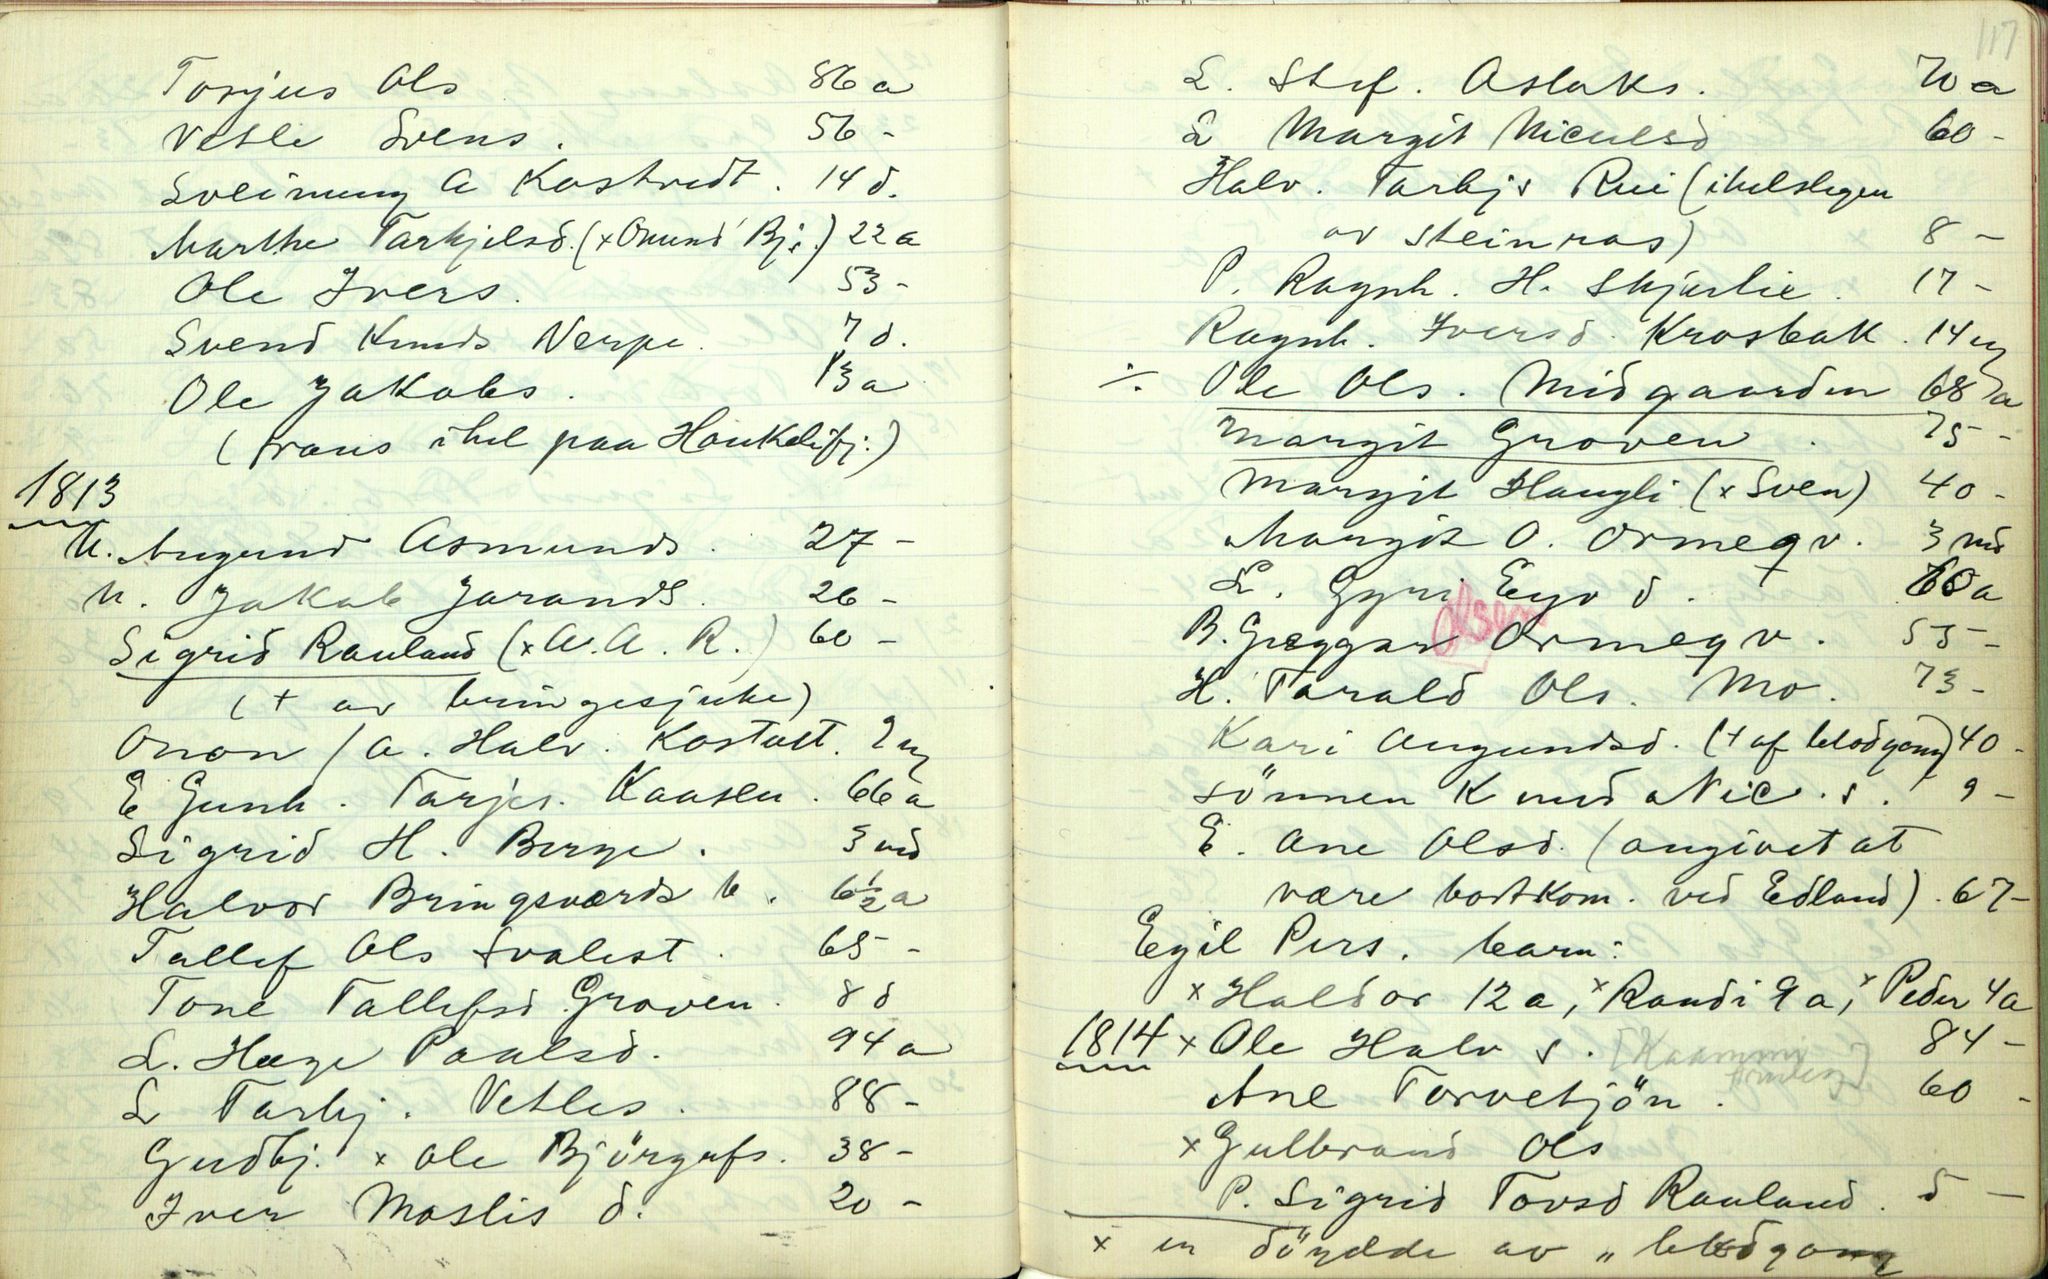 Torjus Ols 86 a
Vetle Svens. 56 -
Sveinung A Kostvedt. 14 d.
Marthe Tarkjelsd. (x Onund Bj.) 22 a
Ole Ivers. 53 -
Svend Knuds Nerpe. 7 d.
Ole Jakobs. 13 a
(fraus ihel paa Haukelifj:)
1813
U. Augund Asmunds. 27 -
U. Jakob Jarands. 26 -
Sigrid Rauland (x A. A. R.) 60 -
(+ av bringesjuke)
Onon / a. Halv. Kostvett.
E Gunh. Tarjes. Kaasen. 66 a
Sigrid H. Berge. 3 md
Halvor Bringsværds b. 6½ a
Tallef Ols Svalest. 65 -
Tone Tallefsd. Groven. 8 d
L. Hæge Paalsd. 94 a
L Tarkj. Vetles. 88 -
Gudbj. x Ole Björgufs. 38 -
Iver Moslis d. 20 -
117
L. Stef. Aslaks. 70 a
L Margit Niculsd 60 -
Halv. Tarkjs Rui (ihelslegen
av steinras) 8 -
P. Ragnh. H. Skjerlie. 17 -
Ragnh. Iversd. Krosbak. 14
÷ Ole Ols. Midgaarden 68 a
Margit Groven. 75 -
Margit Haugli (x Sven) 40 -
Margit O. Ormeqv. 3 md
L. Gyri Eyvd. a
Olsen
B. Greggar Ormeqv. 55 -
H. Tarald Ols. Mo. 73 -
Kari Augundsd. (+ af blodgang) 40 -
Sönnen Knud Nic. s. 9 -
E. Ane Olsd. (angivet at
være bortkom. ved Edland). 67 -
Egil Pers. barn:
x Haldor 12 a, x Randi 9 a, x Peder 4 a
1814 x Ole Halv s. [Kaammi ] 84 -
Ane Torvetjön. 60 -
x Gulbrand Ols
P. Sigrid Tovsd Rauland. 5 -
x er döydde av „blodgang